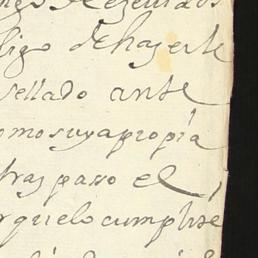 ligo de hazerle
sellado ante
omo suya propia
traspaso el
rquelo cumplire